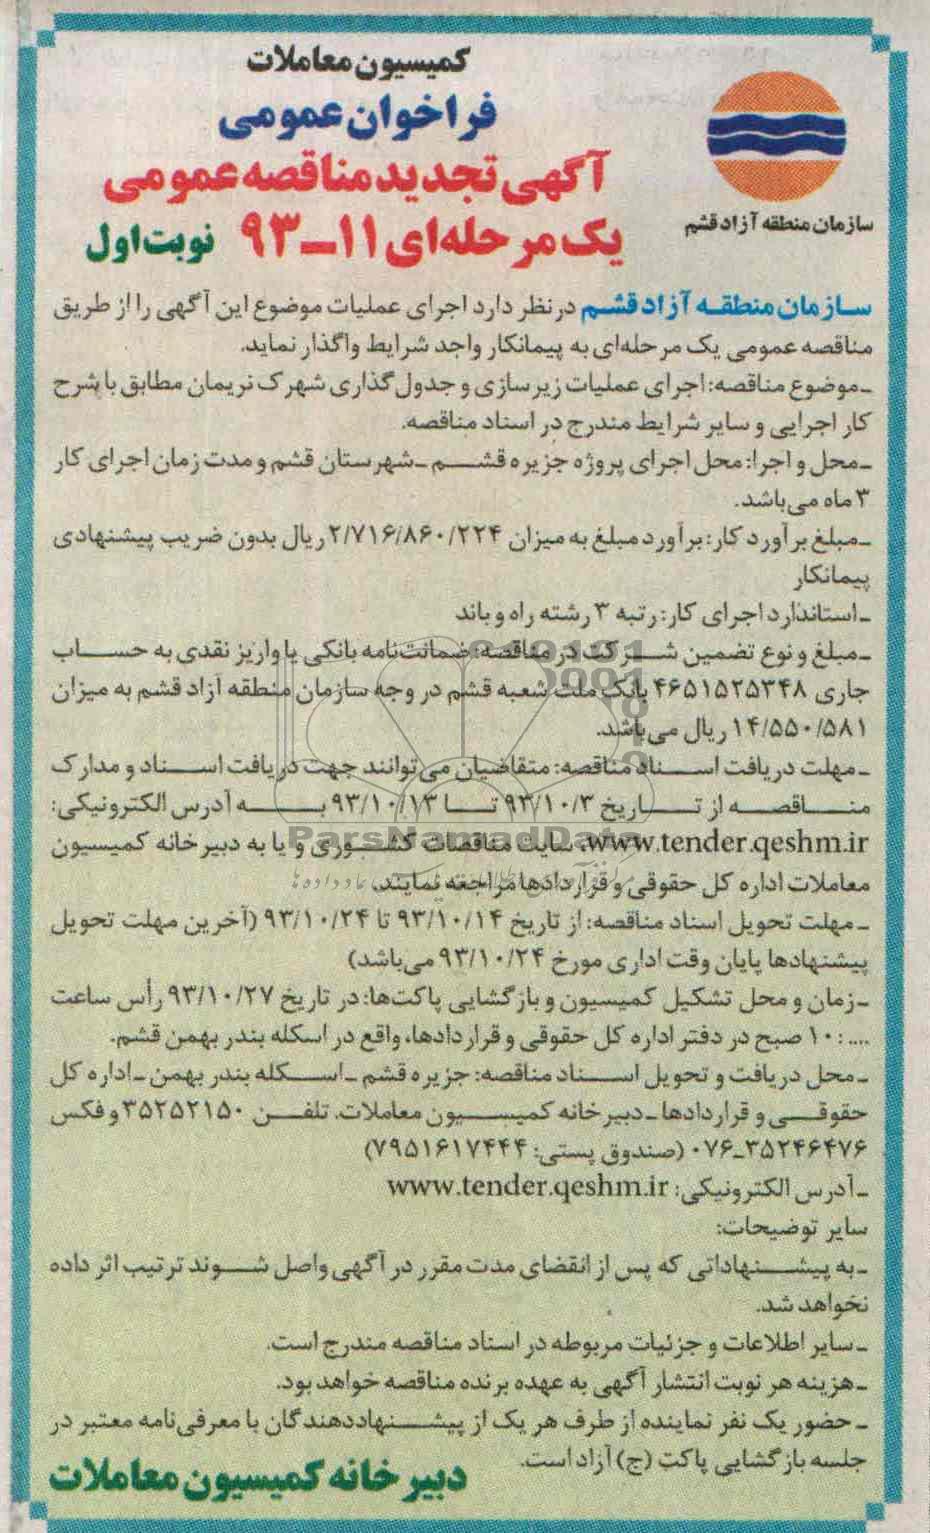 کمیسیون معاملات
فراخوان عمومی
آگهی تجدید مناقصه عمومی
یک مرحله‌ای ۱۱-۹۳ نوبت اول
سازمان منطقه آزاد قشم
سازمان منطقه آزاد قشم در نظر دارد اجرای عملیات موضوع این آگهی را از طریق
مناقصه عمومی یک مرحله‌ای به پیمانکار واجد شرایط واگذار نماید.
-موضوع مناقصه: اجرای عملیات زیرسازی و جدول گذاری شهرک نریمان مطابق با شرح
کار اجرایی و سایر شرایط مندرج در اسناد مناقصه.
-محل و اجرا: محل اجرای پروژه جزیره قشم -شهرستان قشم و مدت زمان اجرای کار
۳ ماه می‌باشد.
-مبلغ برآورد کار: برآورد مبلغ به میزان ۲/۷۱۶/۸۶۰/۲۲۴ ریال بدون ضریب پیشنهادی
پیمانکار
-استاندارد اجرای کار: رتبه ۳ رشته راه و باند
-مبلغ و نوع تضمین شرکت در مناقصه: ضمانت‌نامه بانکی یا واریز نقدی به حساب
جاری ۴۶۵۱۵۲۵۳۴۸ بانک ملت شعبه قشم در وجه سازمان منطقه آزاد قشم به میزان
۱۴/۵۵۰/۵۸۱ ریال می‌باشد.
-مهلت دریافت اسناد مناقصه: متقاضیان می‌توانند جهت دریافت اسناد و مدارک
مناقصه از تاریخ ۹۳/۱۰/۳ تا ۹۳/۱۰/۱۳ به آدرس الکترونیکی:
www.tender.qeshm.ir، سایت مناقصات کشوری و یا به دبیرخانه کمیسیون
معاملات اداره کل حقوقی و قراردادها مراجعه نمایند.
-مهلت تحویل اسناد مناقصه: از تاریخ ۹۳/۱۰/۱۴ تا ۹۳/۱۰/۲۴ (آخرین مهلت تحویل
پیشنهادها پایان وقت اداری مورخ ۹۳/۱۰/۲۴ می‌باشد)
-زمان و محل تشکیل کمیسیون و بازگشایی پاکت‌ها: در تاریخ ۹۳/۱۰/۲۷ رأس ساعت
....:۱۰ صبح در دفتر اداره کل حقوقی و قراردادها، واقع در اسکله بندر بهمن قشم.
-محل دریافت و تحویل اسناد مناقصه: جزیره قشم -اسکله بندر بهمن -اداره کل
حقوقی و قراردادها -دبیرخانه کمیسیون معاملات. تلفن ۳۵۲۵۲۱۵۰ و فکس
۰۷۶-۳۵۲۴۶۴۷۶ (صندوق پستی: ۷۹۵۱۶۱۷۴۴۴)
-آدرس الکترونیکی: www.tender.qeshm.ir
سایر توضیحات:
-به پیشنهاداتی که پس از انقضای مدت مقرر در آگهی واصل شوند ترتیب اثر داده
نخواهد شد.
-سایر اطلاعات و جزئیات مربوطه در اسناد مناقصه مندرج است.
-هزینه هر نوبت انتشار آگهی به عهده برنده مناقصه خواهد بود.
-حضور یک نفر نماینده از طرف هر یک از پیشنهاددهندگان با معرفی‌نامه معتبر در
جلسه بازگشایی پاکت (ج) آزاد است.
دبیرخانه کمیسیون معاملات
ParsNamadData